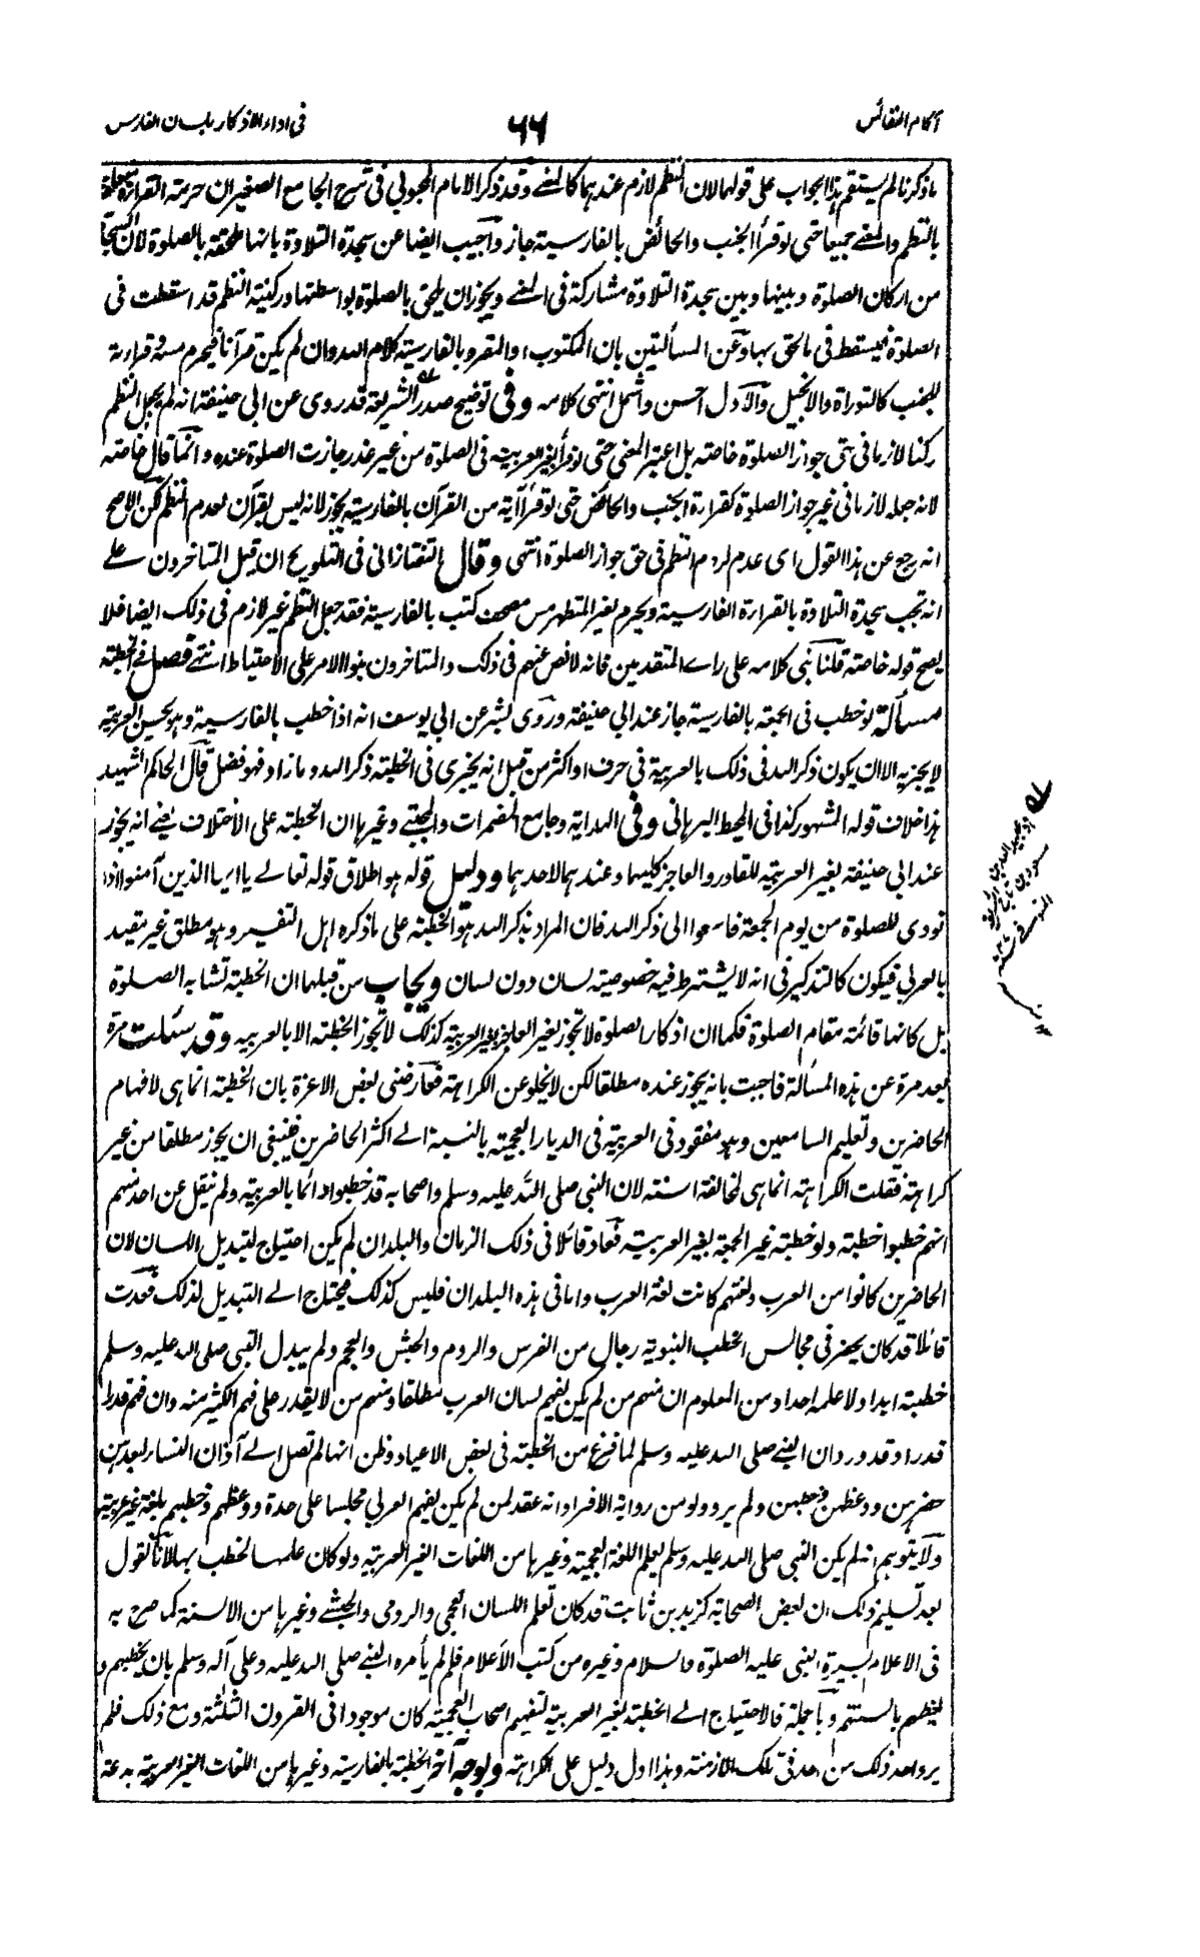 آكام النفائس
٦٦
فى اداء الاذكار بلسان الفارس
ما ذكرنا لم يستقم هذا الجواب على قولهما لان النظم لازم عندهما كالمعنى وقد ذكر الامام المحبوبى فى شرح الجامع الصغير ان حرمة القراءة متعلقة
بالنظم والمعنى جميعا حتى لو قرأ الجنب والحائض بالفارسية جاز واجيب ايضا عن سجدة التلاوة بانها ملحقة بالصلوة لان السجدة
من اركان الصلوة وبينها وبين سجدة التلاوة مشاركة فى المعنى ويجوز ان يلحق بالصلوة بواسطتها وركنية النظم قد اسقطت فى
الصلوة فيسقط فى ما لحق بها وعن المسألتين بان المكتوب او المقرو بالفارسية كلام الله وان لم يكن قرآنا فيحرم مسه وقراءته
للجنب كالتوراة والانجيل والاول احسن واشمل انتهى كلامه وفى توضيح صدر الشريعة قد روى عن ابى حنيفة انه لم يجعل النظم
ركنا لازما فى حق جواز الصلوة خاصة بل اعتبر المعنى حتى لو قرأ بغير العربية فى الصلوة من غير عذر جازت الصلوة عنده وانما قال خاصة
لانه جعله لازما فى غير جواز الصلوة كقراءة الجنب والحائض حتى لو قرأ آية من القرآن بالفارسية يجوز لانه ليس بقرآن لعدم النظم لكن الاصح
انه رجع عن هذا القول اى عدم لزوم النظم فى حق جواز الصلوة انتهى وقال التفتازانى فى التلويح ان قيل المتاخرون على
انه تجب سجدة التلاوة بالقراءة الفارسية ويحرم لغير المتطهر مس مصحف كتب بالفارسية فقد جعل النظم غير لازم فى ذلك ايضا فلا
يصح قوله خاصة قلنا بنى كلامه على راى المتقدمين فانه لا نص عنهم فى ذلك والمتاخرون بنوا الامر على الاحتياط انتهى فصل فى الخطبة
مسألة لو خطب فى الجمعة بالفارسية جاز عند ابى حنيفة وروى بشر عن ابى يوسف انه اذا خطب بالفارسية وهو يحسن العربية
لا يجزيه الا ان يكون ذكر الله فى ذلك بالعربية فى حرف او اكثر من قبل انه يجزى فى الخطبة ذكر الله وما زاد فهو فضل قال الحاكم الشهيد
هذا خلاف قوله المشهور كذا فى المحيط البرهانى وفى الهداية وجامع المضمرات والمجتبى وغيرها ان الخطبة على الاختلاف يعنى انه يجوز
عند ابى حنيفة بغير العربية للقادر والعاجز كليهما وعندهما لاحدهما ودليل قوله هو اطلاق قوله تعالى يا ايها الذين آمنوا اذا
نودى للصلوة من يوم الجمعة فاسعوا الى ذكر الله فان المراد بذكر الله هو الخطبة على ما ذكره اهل التفسير وهو مطلق غير مقيد
بالعربى فيكون كالتذكير فى انه لا يشترط فيه خصوصية لسان دون لسان ويجاب من قبلهما ان الخطبة تشابه الصلوة
بل كانها قائمة مقام الصلوة فكما ان اذكار الصلوة لا تجوز لغير العاجز بغير العربية كذلك لا تجوز الخطبة الا بالعربية وقد سئلت مرة
بعد مرة عن هذه المسألة فاجبت بانه يجوز عنده مطلقا لكن لا يخلو عن الكراهة فعارضنى بعض الاعزة بان الخطبة انما هى لافهام
الحاضرين وتعليم السامعين وهو مفقود فى العربية فى الديار العجمية بالنسبة الى اكثر الحاضرين فينبغى ان يجوز مطلقا من غير
كراهة فقلت الكراهة انما هى لمخالفة السنة لان النبى صلى الله عليه وسلم واصحابه قد خطبوا دائما بالعربية ولم ينقل عن احد منهم
انهم خطبوا خطبة ولو خطبة غير الجمعة بغير العربية فعاد قائلا فى ذلك الزمان والبلدان لم يكن احتياج لتبديل اللسان لان
الحاضرين كانوا من العرب ولغتهم كانت لغة العرب واما فى هذه البلدان فليس كذلك فيحتاج الى التبديل لذلك فعدت
قائلا قد كان يحضر فى مجالس الخطب النبوية رجال من الفرس والروم والحبش والعجم ولم يبدل النبى صلى الله عليه وسلم
خطبة ابدا ولا علمه احدا ومن المعلوم ان منهم من لم يكن يفهم لسان العرب مطلقا ومنهم من لا يقدر على فهم الكثير منه وان فهم قدرا
قدرا وقد ورد ان النبى صلى الله عليه وسلم لما فرغ من الخطبة فى بعض الاعياد وظن انها لم تصل الى آذان النساء لبعدهن
حضرهن ووعظهن وخطبهن ولم يرو ولو من رواية الافراد انه عقد لمن لم يكن يفهم العربى مجلسا على حدة ووعظهم وخطبهم بلغة غير عربية
ولا يتوهم انه لم يكن النبى صلى الله عليه وسلم يعلم اللغة العجمية وغيرها من اللغات الغير العربية ولو كان علمها لخطب بها لانا نقول
بعد تسليم ذلك ان بعض الصحابة كزيد بن ثابت قد كان تعلم اللسان العجمى والرومى والحبشى وغيرها من الالسنة كما صرح به
فى الاعلام بسيرة النبى عليه الصلوة والسلام وغيره من كتب الاعلام فلم لم يأمره النبى صلى الله عليه وعلى آله وسلم بان يخطبهم و
يعظهم بالسنتهم وبالجملة فالاحتياج الى الخطبة بغير العربية لتفهيم اصحاب العجمية كان موجودا فى القرون الثلثة ومع ذلك فلم
يرو احد ذلك من احد فى تلك الازمنة وهذا اول دليل على الكراهة وبوجه آخر الخطبة بالفارسية وغيرها من اللغات الغير العربية بدعة
له هو عبيد الله بن
مسعود بن تاج الشريعة
المتوفى سنة
١٢ منه